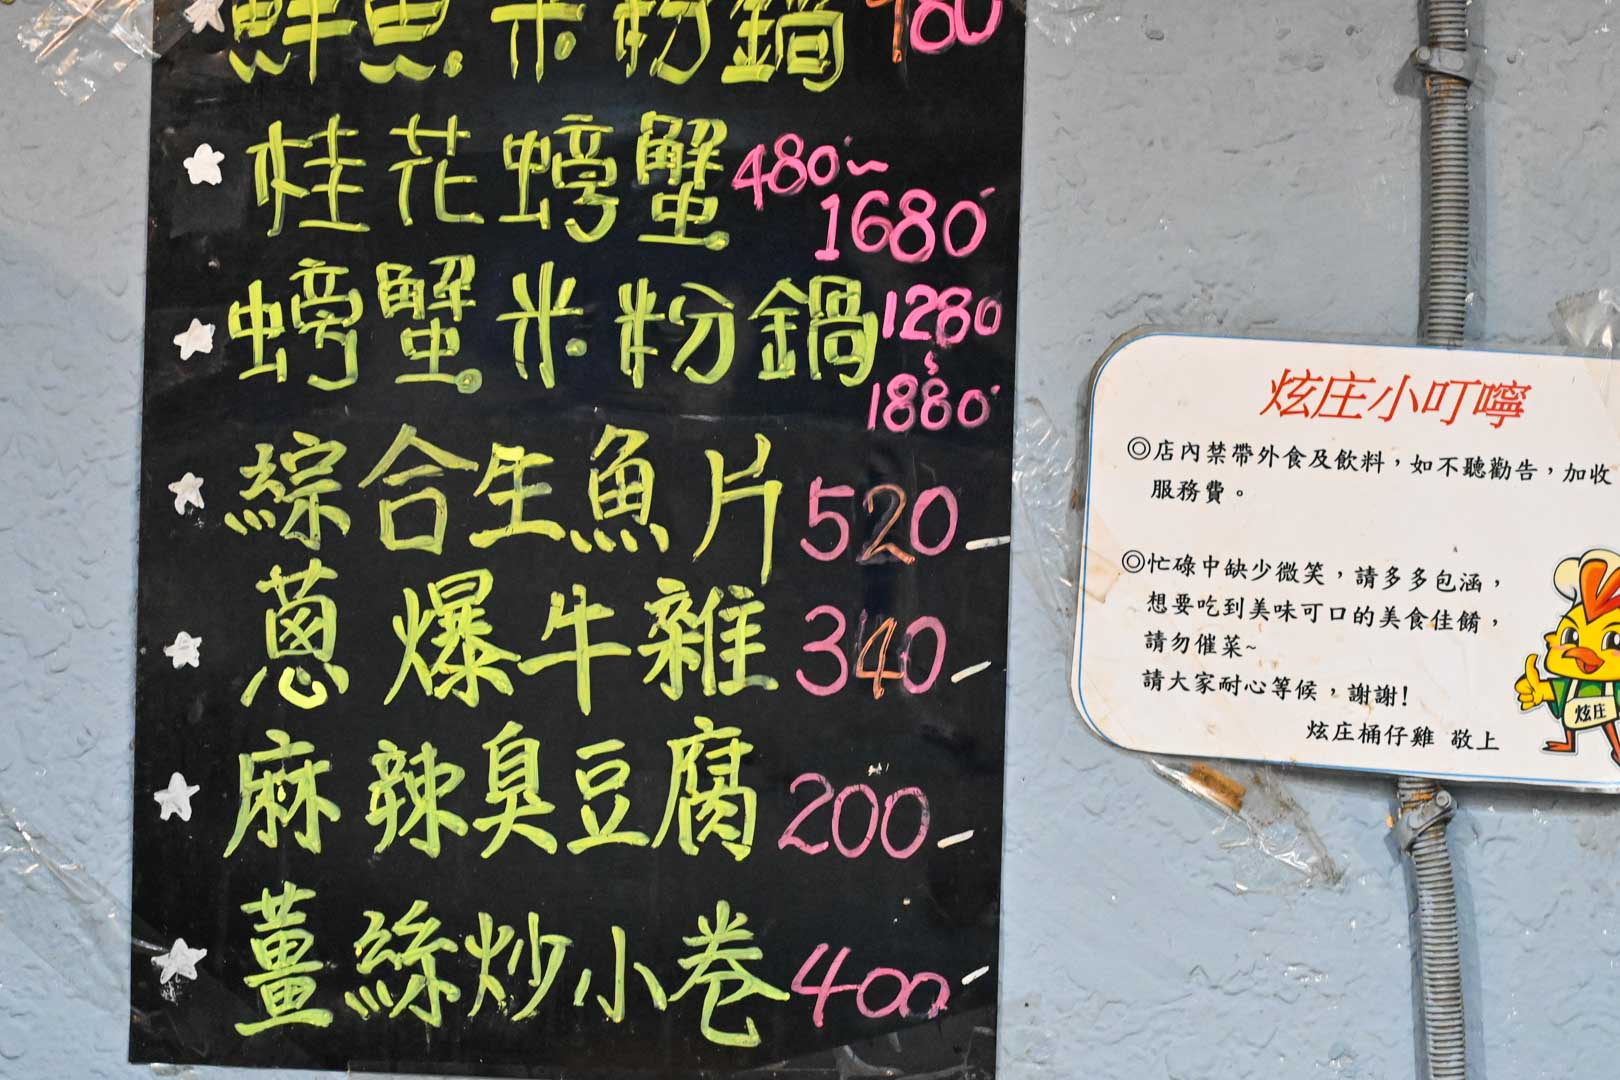 鮮魚米粉鍋 780
桂花螃蟹 480~
1680
螃蟹米粉鍋 1280
~
1880
綜合生魚片 520-
蔥爆牛雜 340-
麻辣臭豆腐 200-
薑絲炒小卷 400-
炫庄小叮嚀
◎店內禁帶外食及飲料，如不聽勸告，加收
服務費。
◎忙碌中缺少微笑，請多多包涵，
想要吃到美味可口的美食佳餚，
請勿催菜~
請大家耐心等候，謝謝!
炫庄桶仔雞 敬上
炫庄